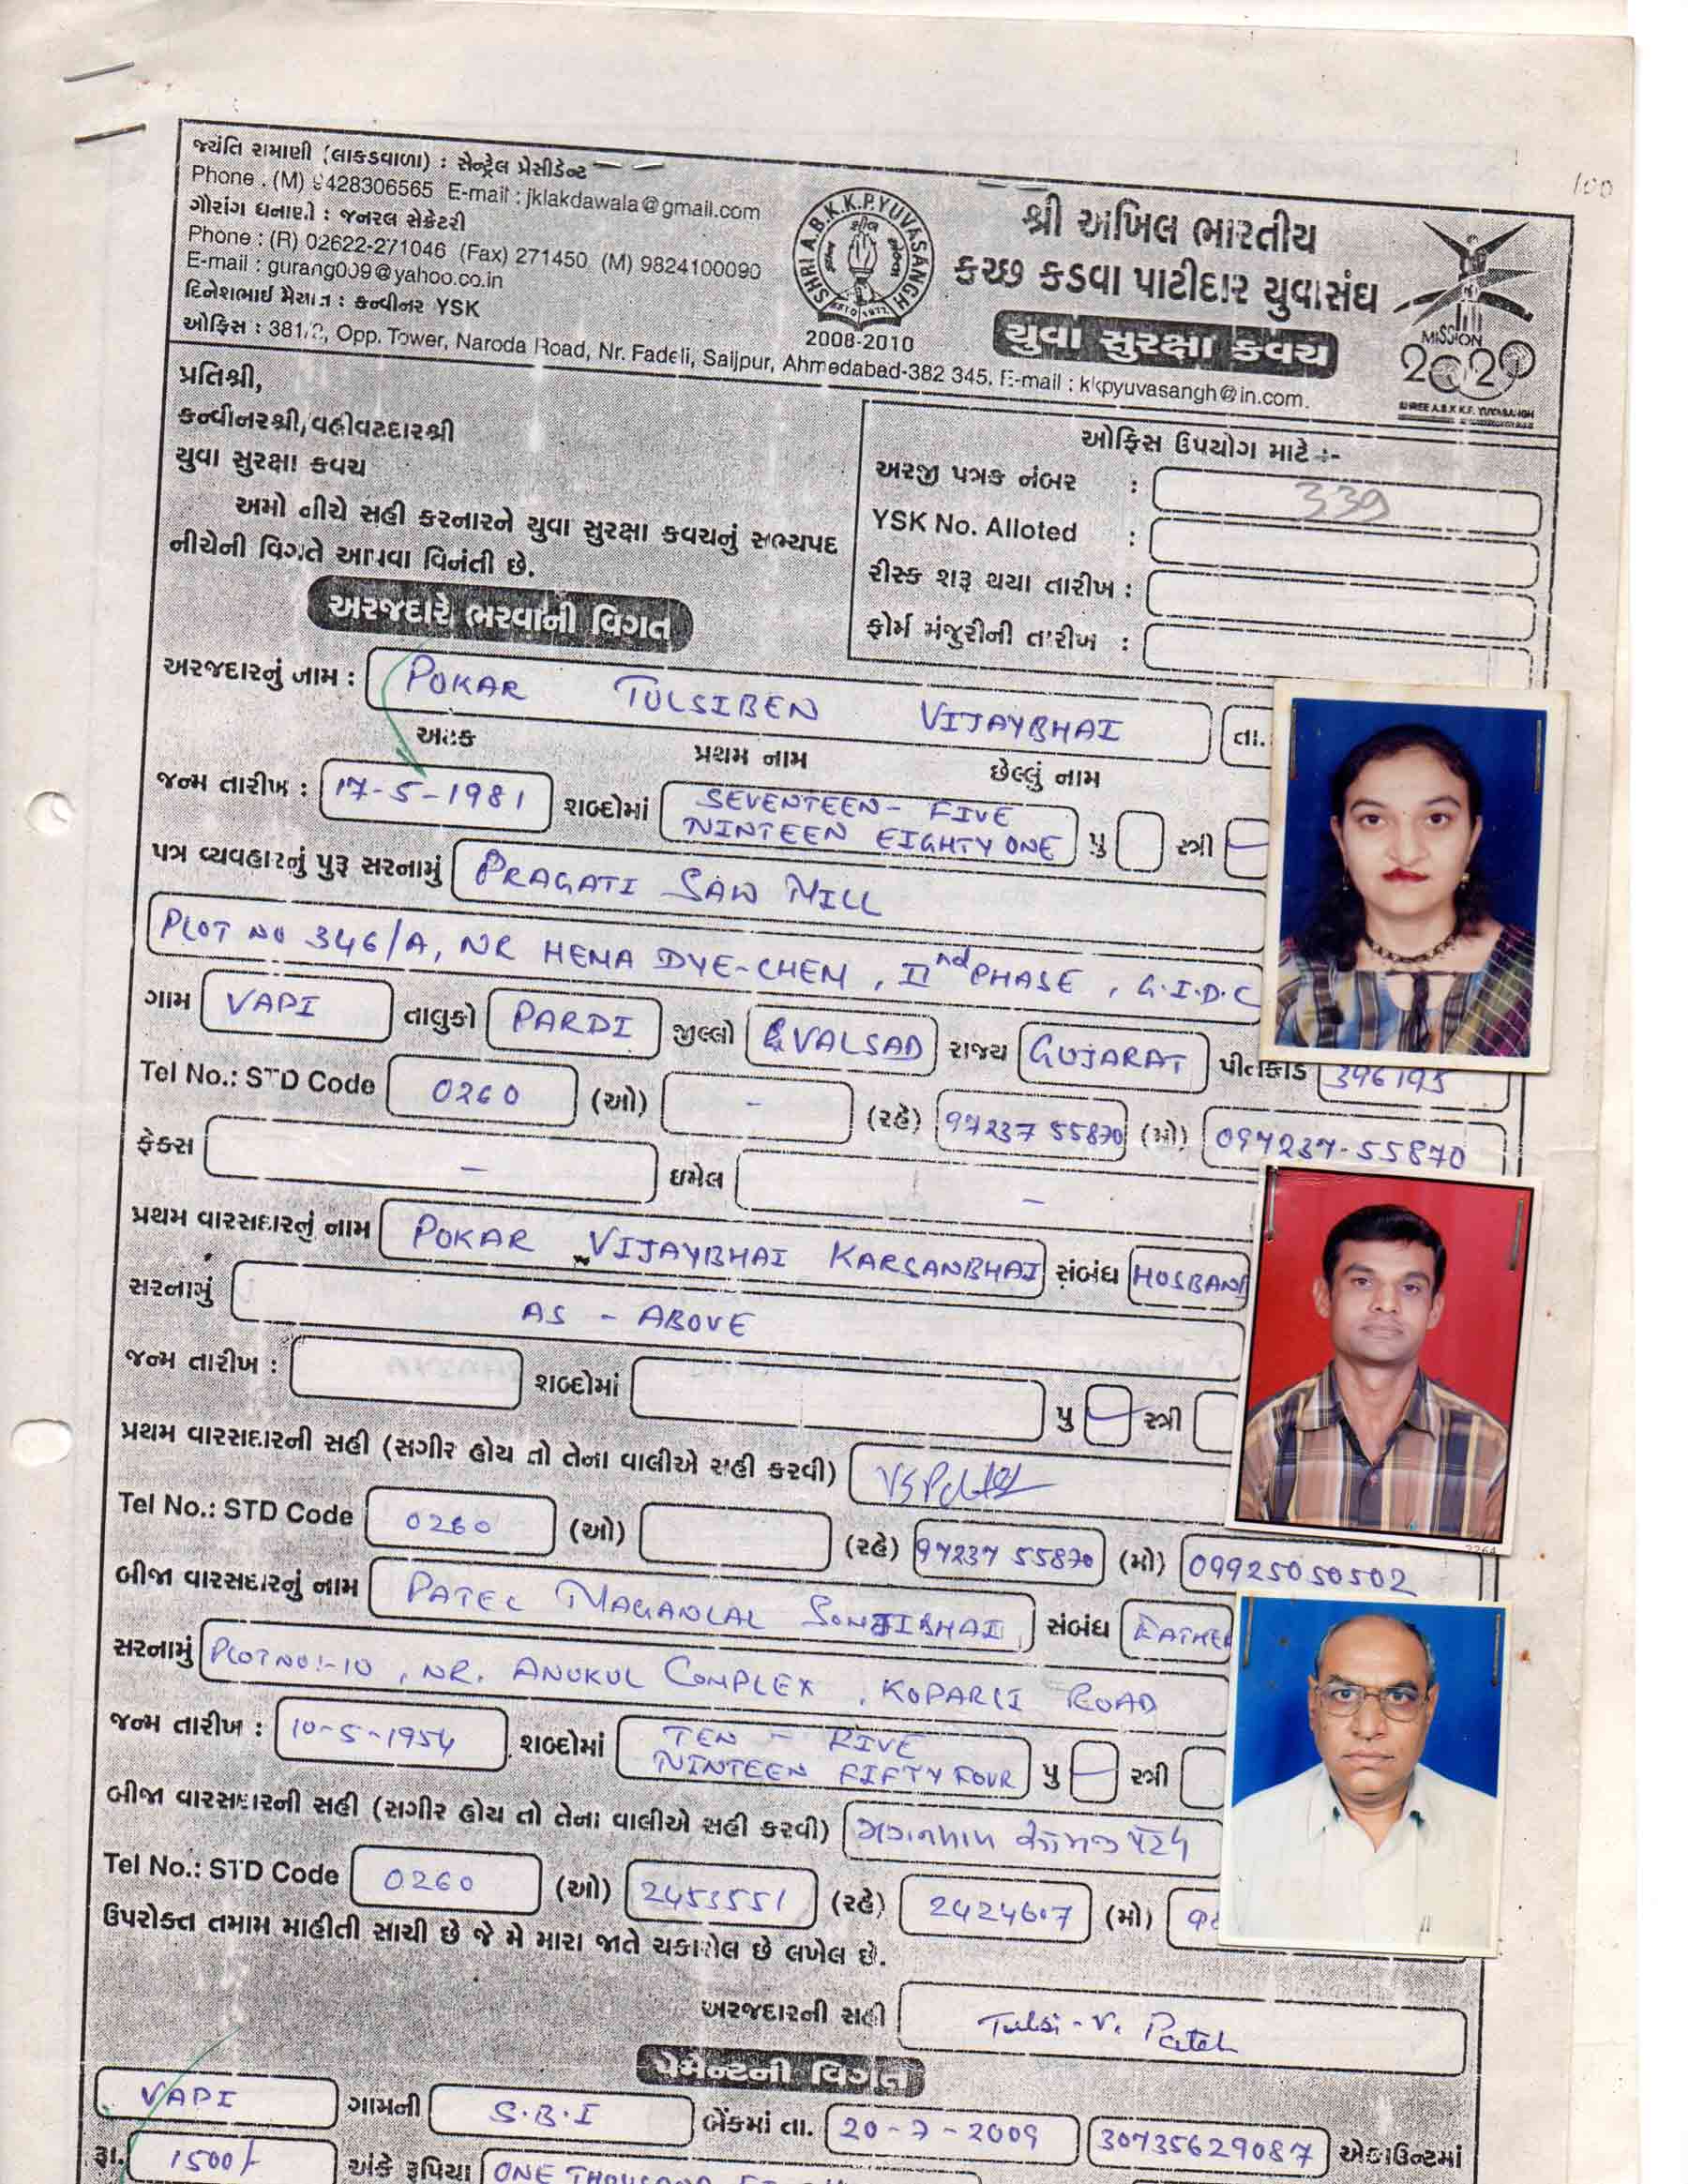 100
જ્યંતિ રામાણી (લાકડવાળા) : સેન્ટ્રલ પ્રેસીડેન્ટ
Phone . (M) 9428306565 E-mail : jklakdawala@gmail.com
ગૌરાંગ ધનાણી : જનરલ સેક્રેટરી
Phone : (R) 02622-271046 (Fax) 271450 (M) 9824100090
E-mail : gurang009@yahoo.co.in
દિનેશભાઈ : કન્વીનર YSK
ઓફિસ : 381/2, Opp. Tower, Naroda Road, Nr. Fadeli, Saijpur, Ahmedabad-382 345. E-mail : kkpyuvasangh@in.com.
SHRI A.B.K.K.P.YUVASANGH
2008-2010
શ્રી અખિલ ભારતીય
કચ્છ કડવા પાટીદાર યુવાસંઘ
યુવા સુરક્ષા કવચ
MISSION
2020
SHREE A.B.K.K.P. YUVASANGH
પ્રતિશ્રી,
કન્વીનરશ્રી/વહીવટદારશ્રી
યુવા સુરક્ષા કવચ
અમો નીચે સહી કરનારને યુવા સુરક્ષા કવચનું સભ્યપદ
નીચેની વિગતે આપવા વિનંતી છે.
ઓફિસ ઉપયોગ માટે :-
અરજી પત્રક નંબર : 339
YSK No. Alloted :
રીસ્ક શરૂ થયા તારીખ :
ફોર્મ મંજુરીની તારીખ :
અરજદારે ભરવાની વિગત
અરજદારનું નામ : POKAR TULSIBEN VIJAYBHAI તા.
અટક પ્રથમ નામ છેલ્લું નામ
જન્મ તારીખ : 17-5-1981 શબ્દોમાં SEVENTEEN - FIVE NINTEEN EIGHTY ONE પુ સ્ત્રી
પત્ર વ્યવહારનું પુરૂ સરનામું PRAGATI SAW MILL
PLOT NO 346/A, NR HEMA DYE-CHEM, IInd PHASE, G.I.D.C
ગામ VAPI તાલુકો PARDI જીલ્લો VALSAD રાજ્ય GUJARAT પીનકોડ 396195
Tel No.: STD Code 0260 (ઓ) - (રહે) 97237 55870 (મો) 097237-55870
ફેકસ - ઇમેલ -
પ્રથમ વારસદારનું નામ POKAR VIJAYBHAI KARSANBHAI સંબંધ HUSBAND
સરનામું AS - ABOVE
જન્મ તારીખ : શબ્દોમાં પુ સ્ત્રી
પ્રથમ વારસદારની સહી (સગીર હોય તો તેના વાલીએ સહી કરવી)
Tel No.: STD Code 0260 (ઓ) (રહે) 97237 55870 (મો) 09925050502
2264
બીજા વારસદારનું નામ PATEL MAGANLAL SOMJIBHAI સંબંધ FATHER
સરનામું PLOT NO:-10, NR. ANUKUL COMPLEX, KOPARLI ROAD
જન્મ તારીખ : 10-5-1954 શબ્દોમાં TEN - FIVE NINTEEN FIFTY FOUR પુ સ્ત્રી
બીજા વારસદારની સહી (સગીર હોય તો તેના વાલીએ સહી કરવી)
Tel No.: STD Code 0260 (ઓ) 2453551 (રહે) 2424607 (મો)
ઉપરોક્ત તમામ માહીતી સાચી છે જે મે મારા જાતે ચકાસેલ છે લખેલ છે.
અરજદારની સહી Tulsi - V. Patel
પેમેન્ટની વિગત
VAPI ગામની S.B.I બેંકમાં તા. 20-7-2009 30735629087 એકાઉન્ટમાં
રૂા. 1500/- અંકે રૂપિયા ONE THOUSAND